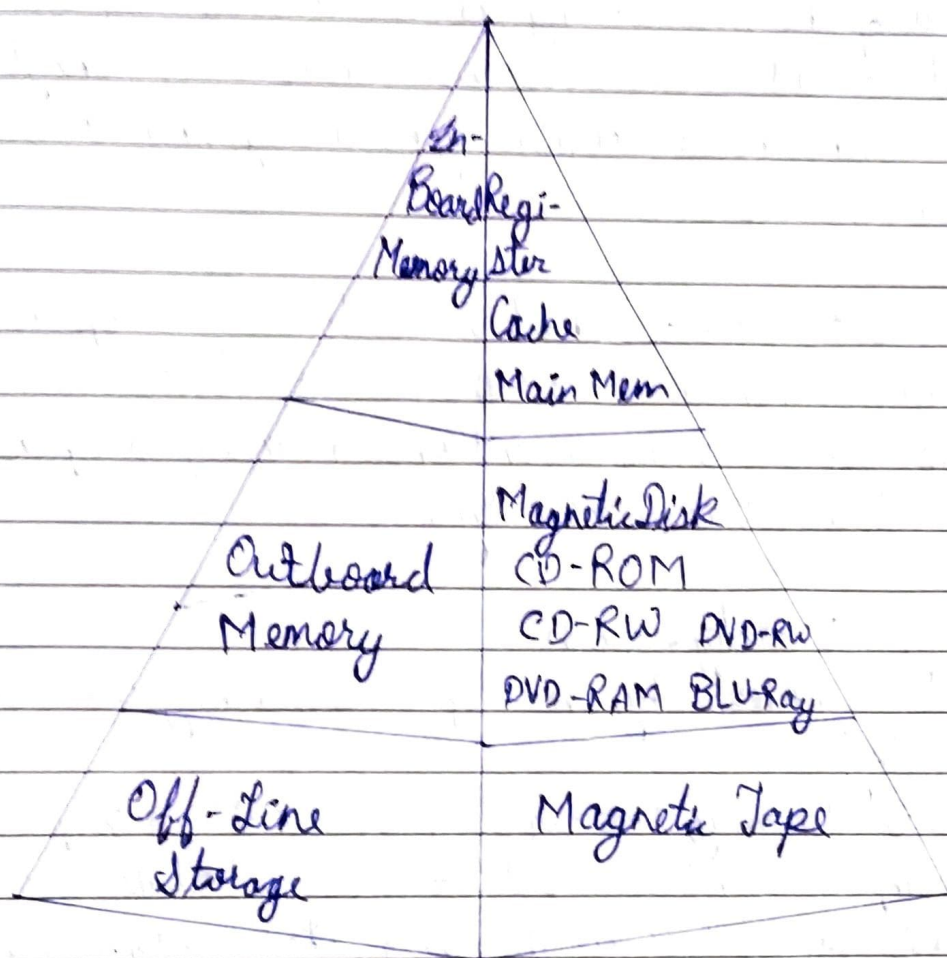 In-
Board
Memory
Regi-
ster
Cache
Main Mem
Outboard
Memory
Magnetic Disk
CD-ROM
CD-RW DVD-RW
DVD-RAM BLU-Ray
Off-Line
Storage
Magnetic Tape